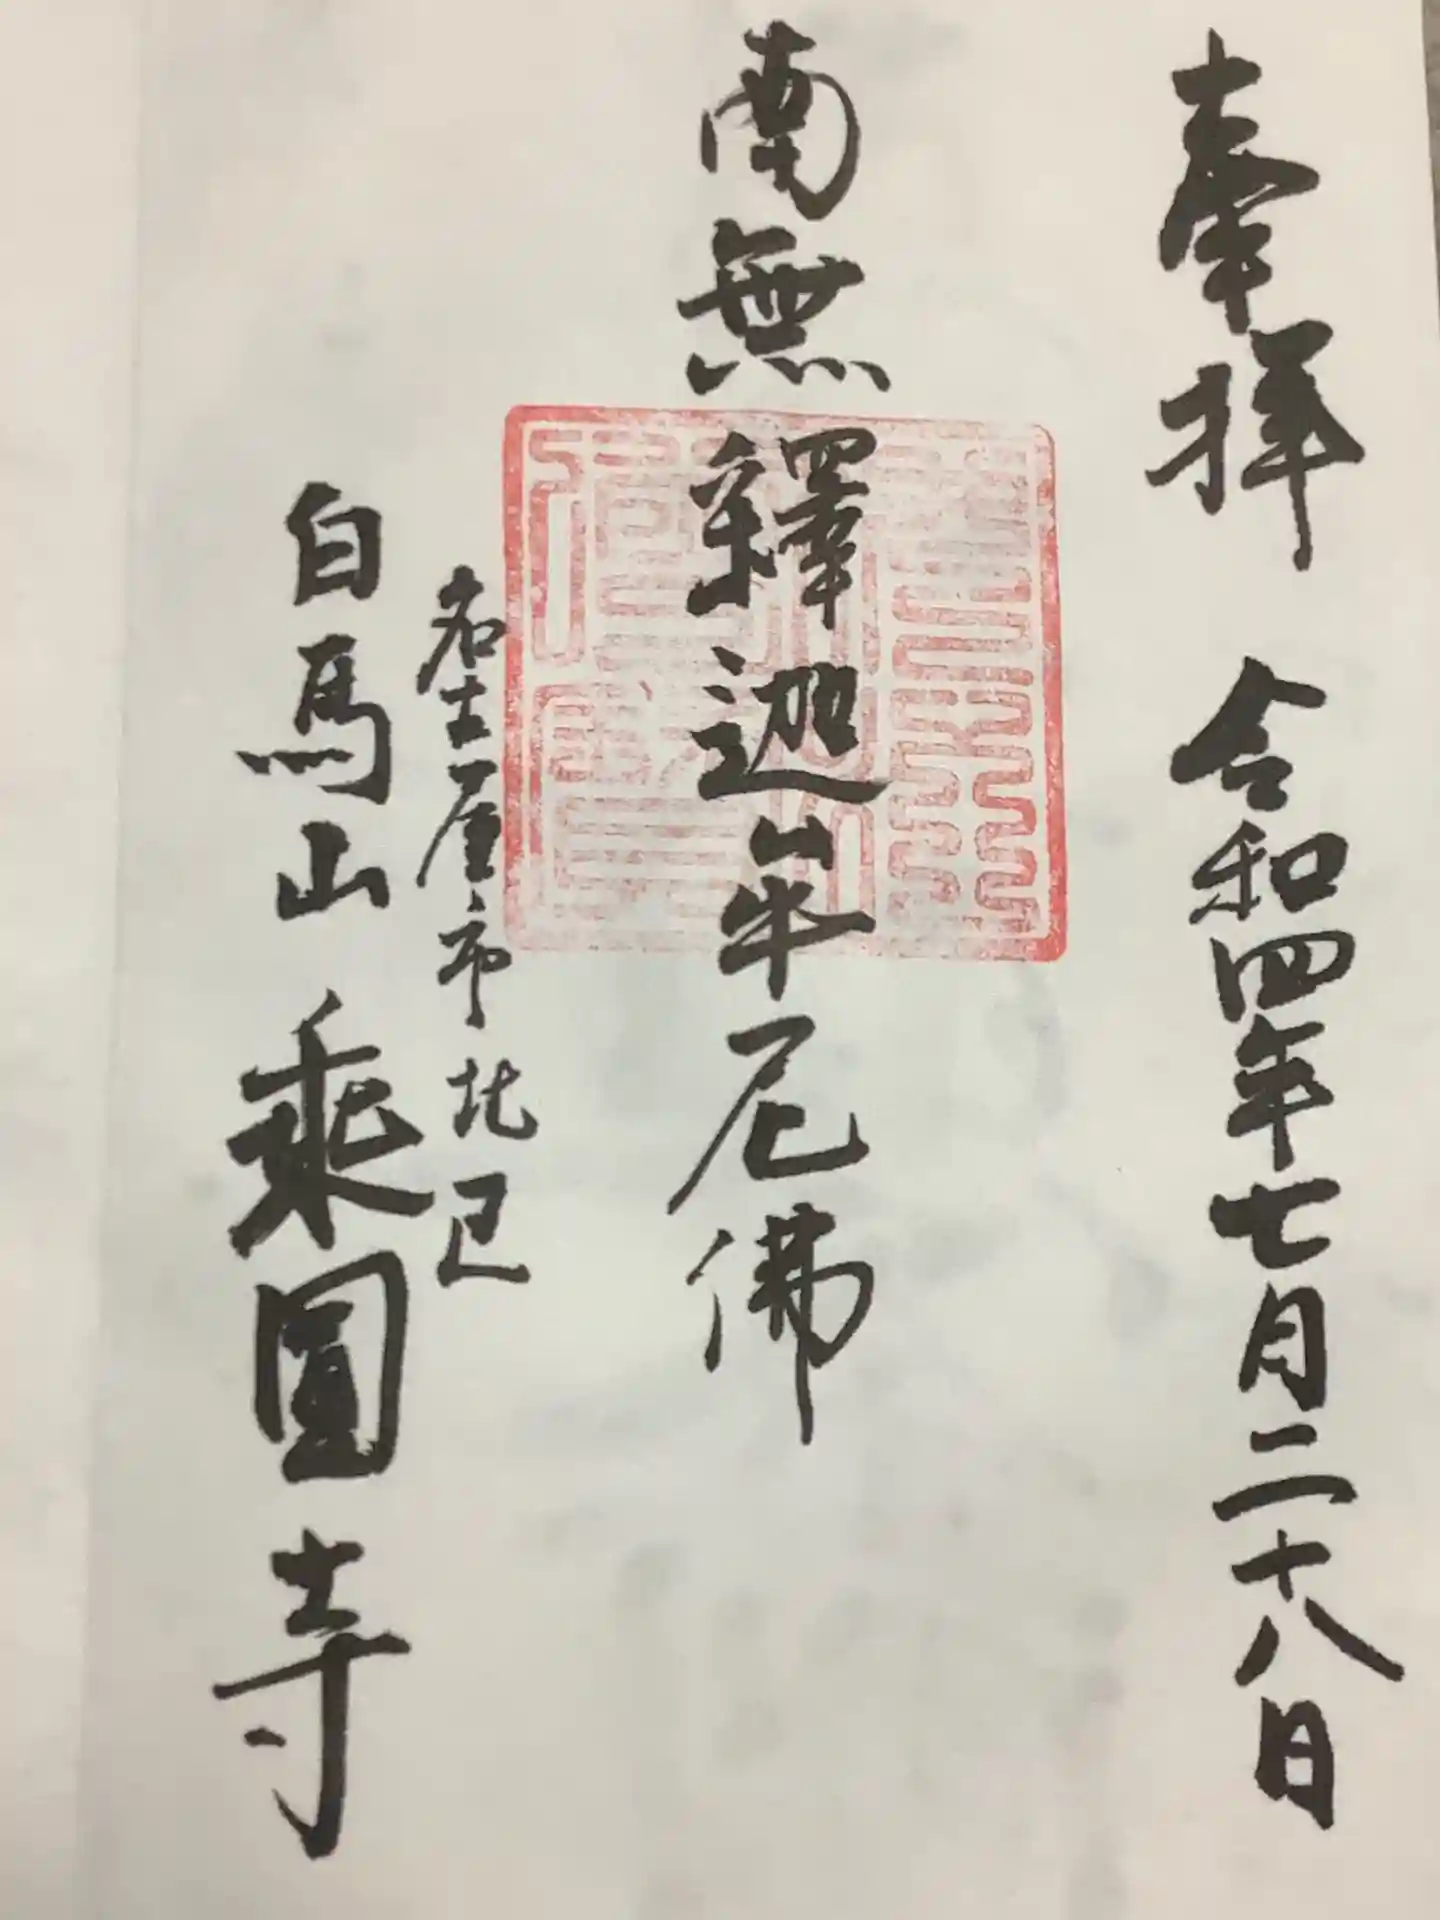 奉拝 令和四年七月二十八日
南無釋迦牟尼佛
名古屋市北区
白馬山 乗圓寺